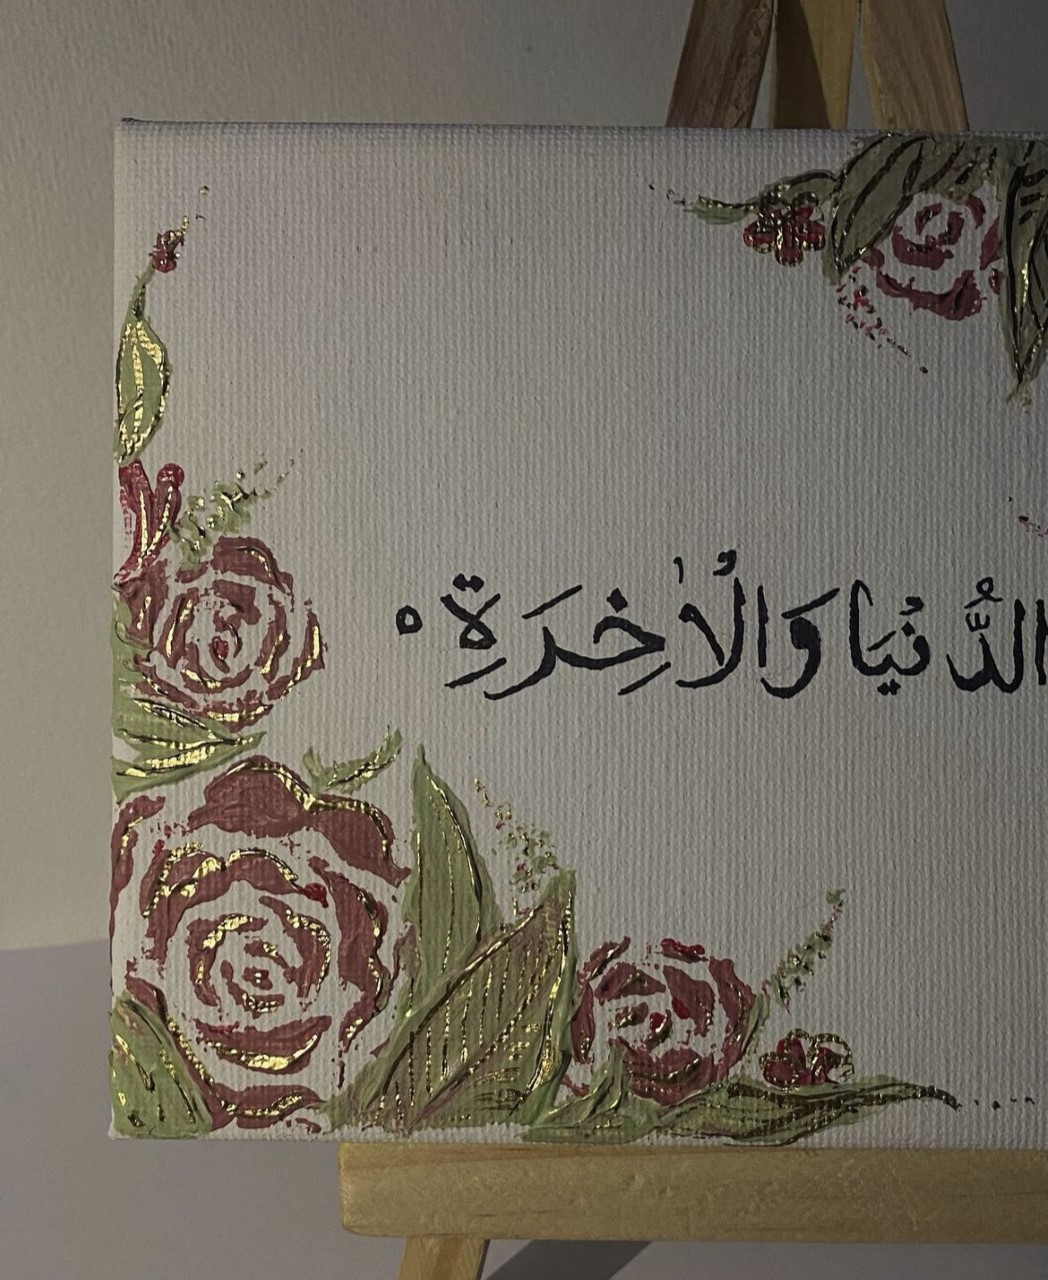 الدُّنْيَا وَالْاٰخِرَةِ ه